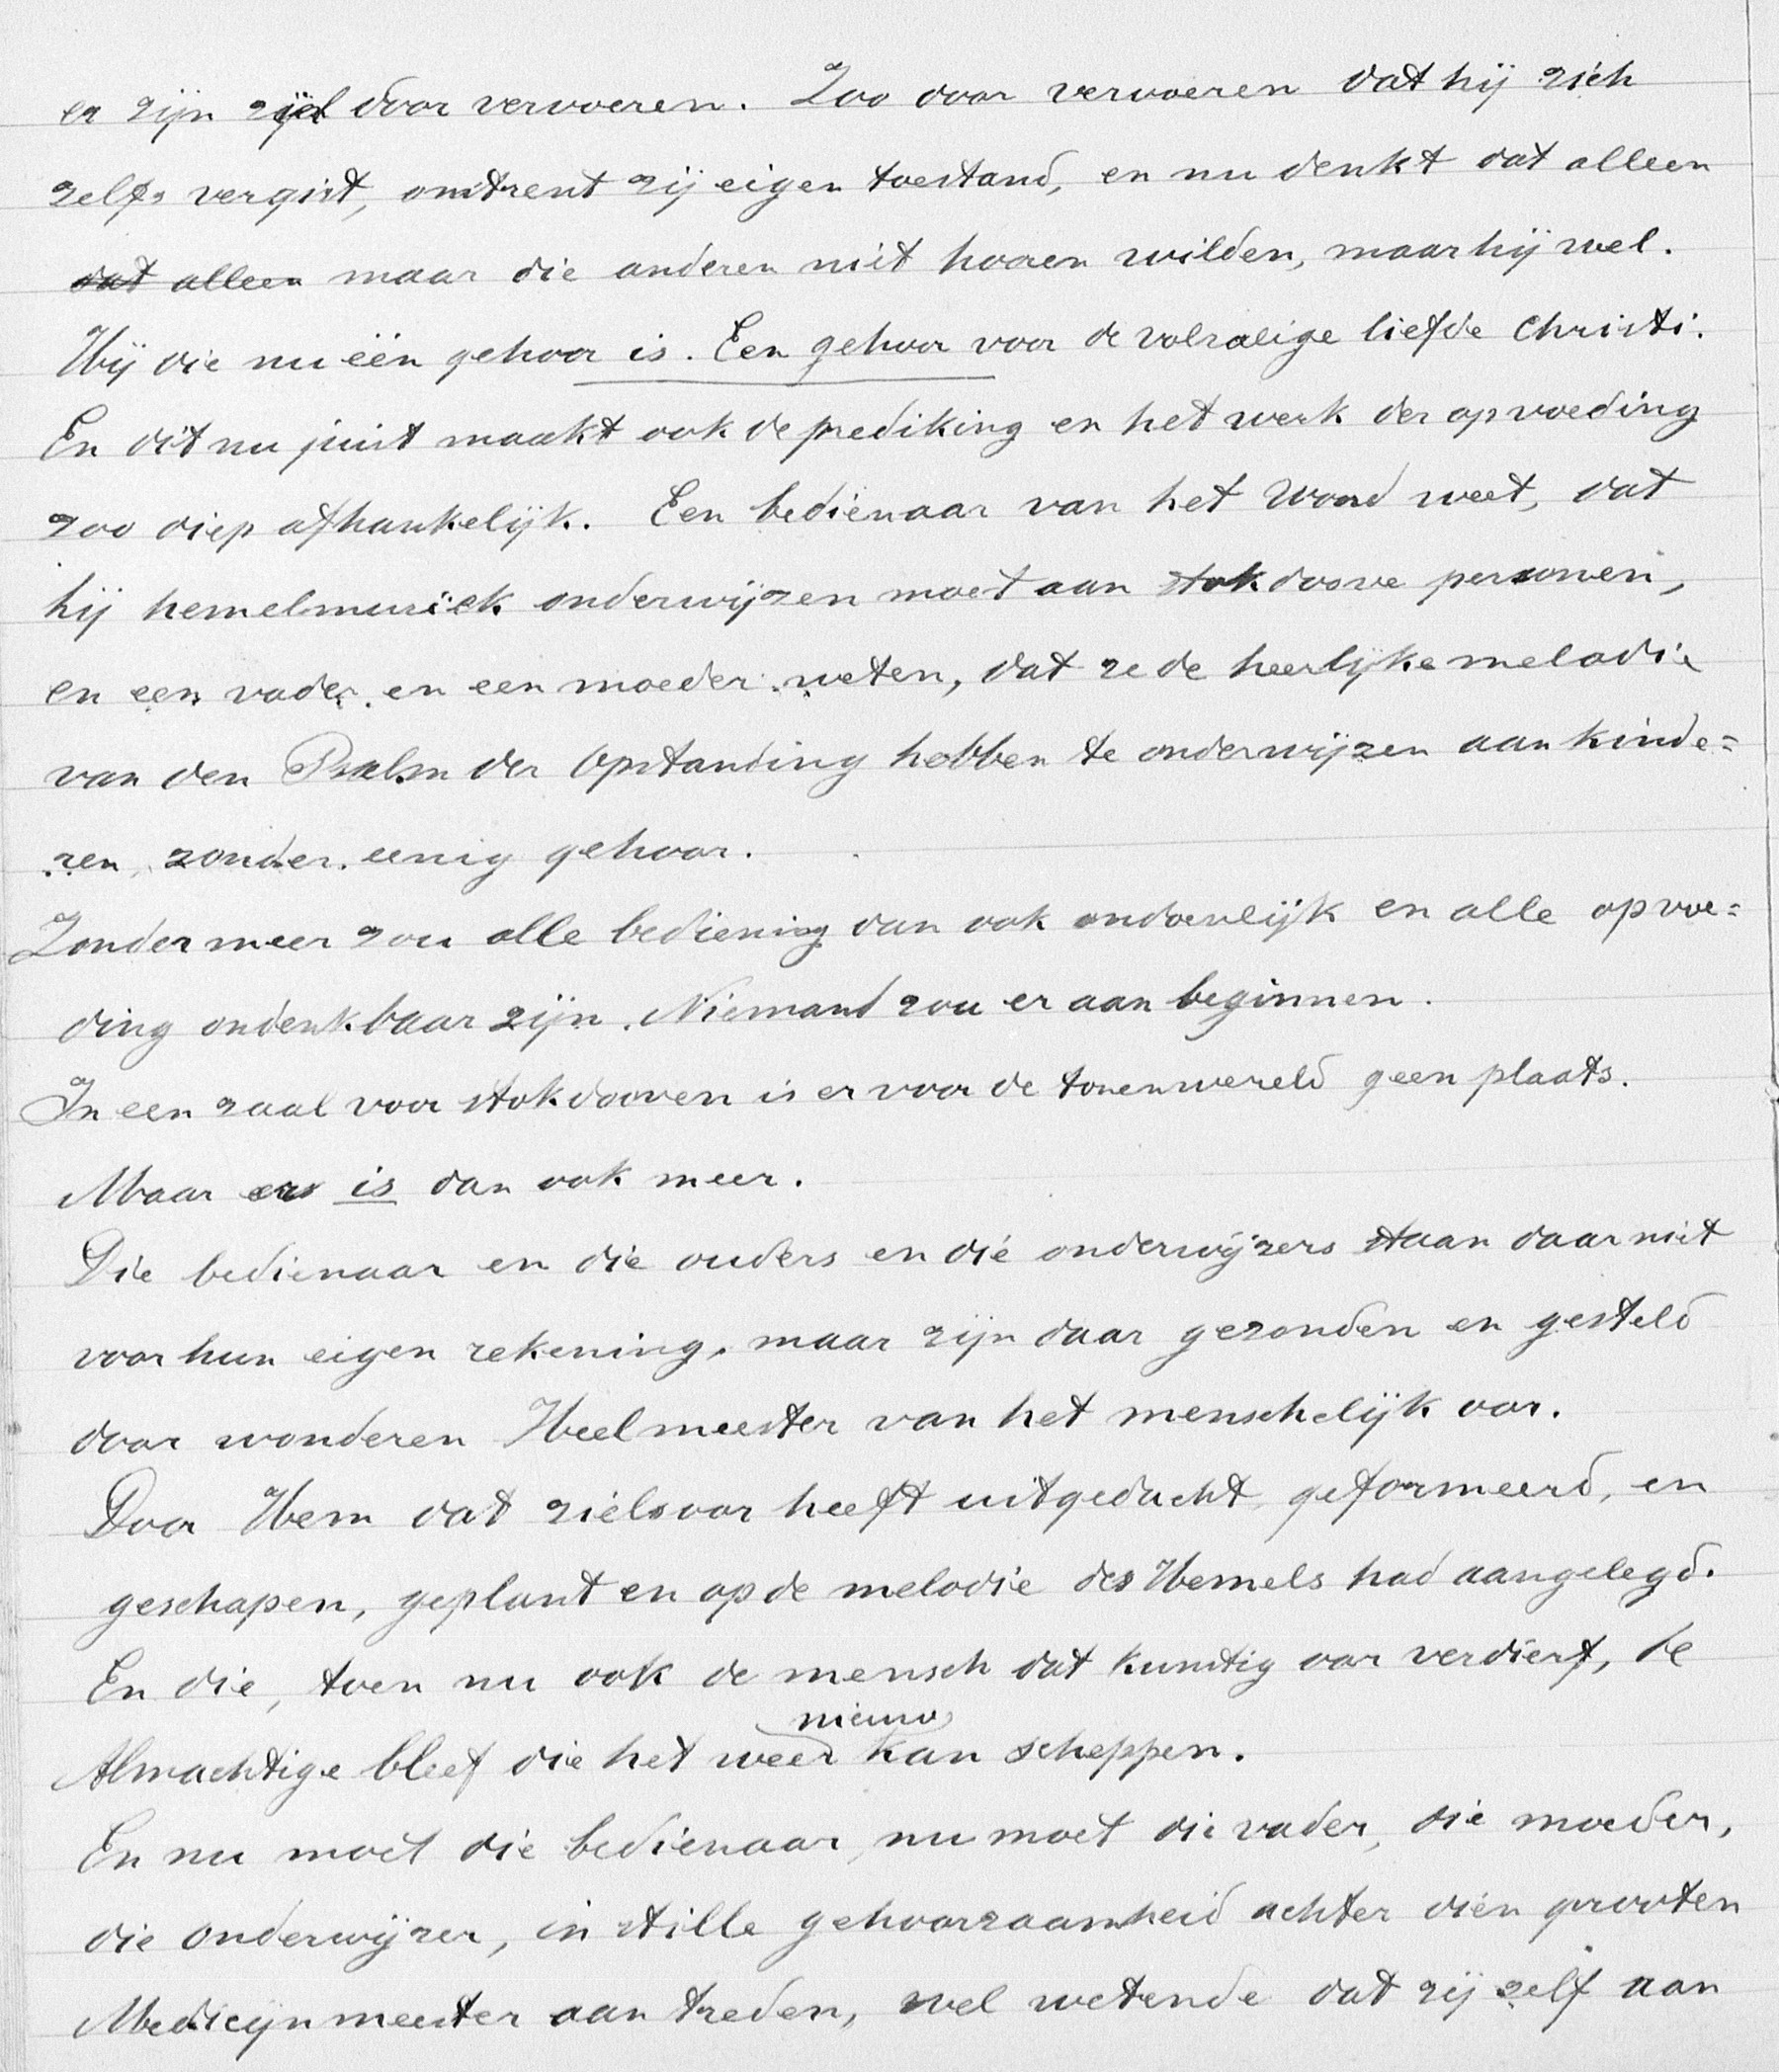 er zijn ziel door vervoeren. Zoo door vervoeren dat hij zich
zelfs vergist, omtrent zij eigen toestand, en nu denkt dat alleen
dat alleen maar die anderen niet hooren wilden, maar hij wel.
Hij die nu één gehoor is. Een gehoor voor de volzalige liefde Christi.
En dit nu juist maakt ook de prediking en het werk der opvoeding
zoo diep afhankelijk. Een bedienaar van het Woord weet, dat
hij hemelmuziek onderwijzen moet aan stokdoove personen,
en een vader en een moeder weten, dat ze de heerlijke melodie
van den Psalm der Opstanding hebben te onderwijzen aan kinde=
ren, zonder eenig gehoor.
Zonder meer zou alle bediening dan ook ondoenlijk en alle opvoe=
ding ondenkbaar zijn. Niemand zou er aan beginnen.
In een zaal voor stokdooven is er voor de tonenwereld geen plaats.
Maar er is dan ook meer.
Die bedienaar en die ouders en die onderwijzers staan daar niet
voor hun eigen rekening, maar zijn daar gezonden en gesteld
door wonderen Heelmeester van het menschelijk oor.
Door Hem dat zielsoor heeft uitgedacht, geformeerd, en
geschapen, geplant en op de melodie des Hemels had aangelegd.
En die, toen nu ook de mensch dat kunstig oor verdierf, de
nieuw
Almachtige bleef die het weer kan scheppen.
En nu moet die bedienaar, nu moet die vader, die moeder,
die onderwijzer, in stille gehoorzaamheid achter dien grooten
Medicijnmeester aan treden, wel wetende dat zij zelf aan